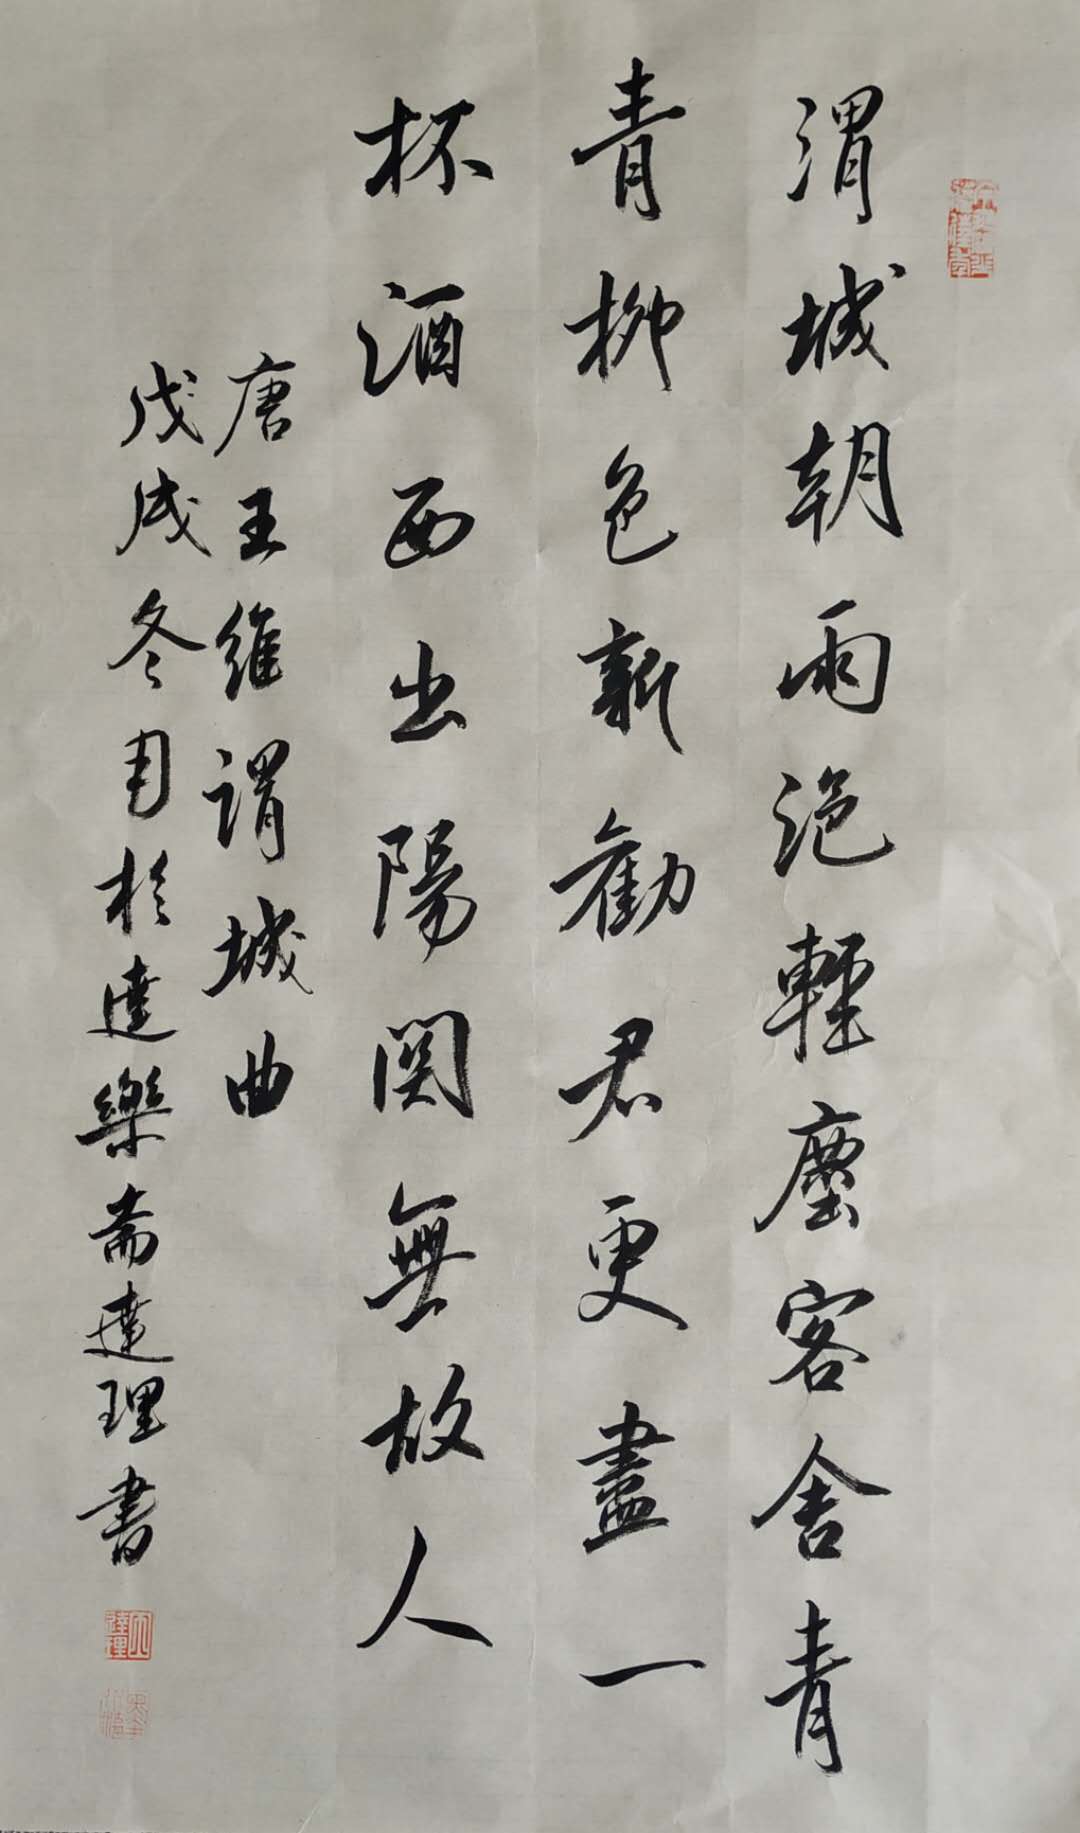 渭城朝雨浥輕塵客舍青
青柳色新勸君更盡一
杯酒西出陽関無故人
唐王維謂城曲
戊戌冬用於達樂斋達理書